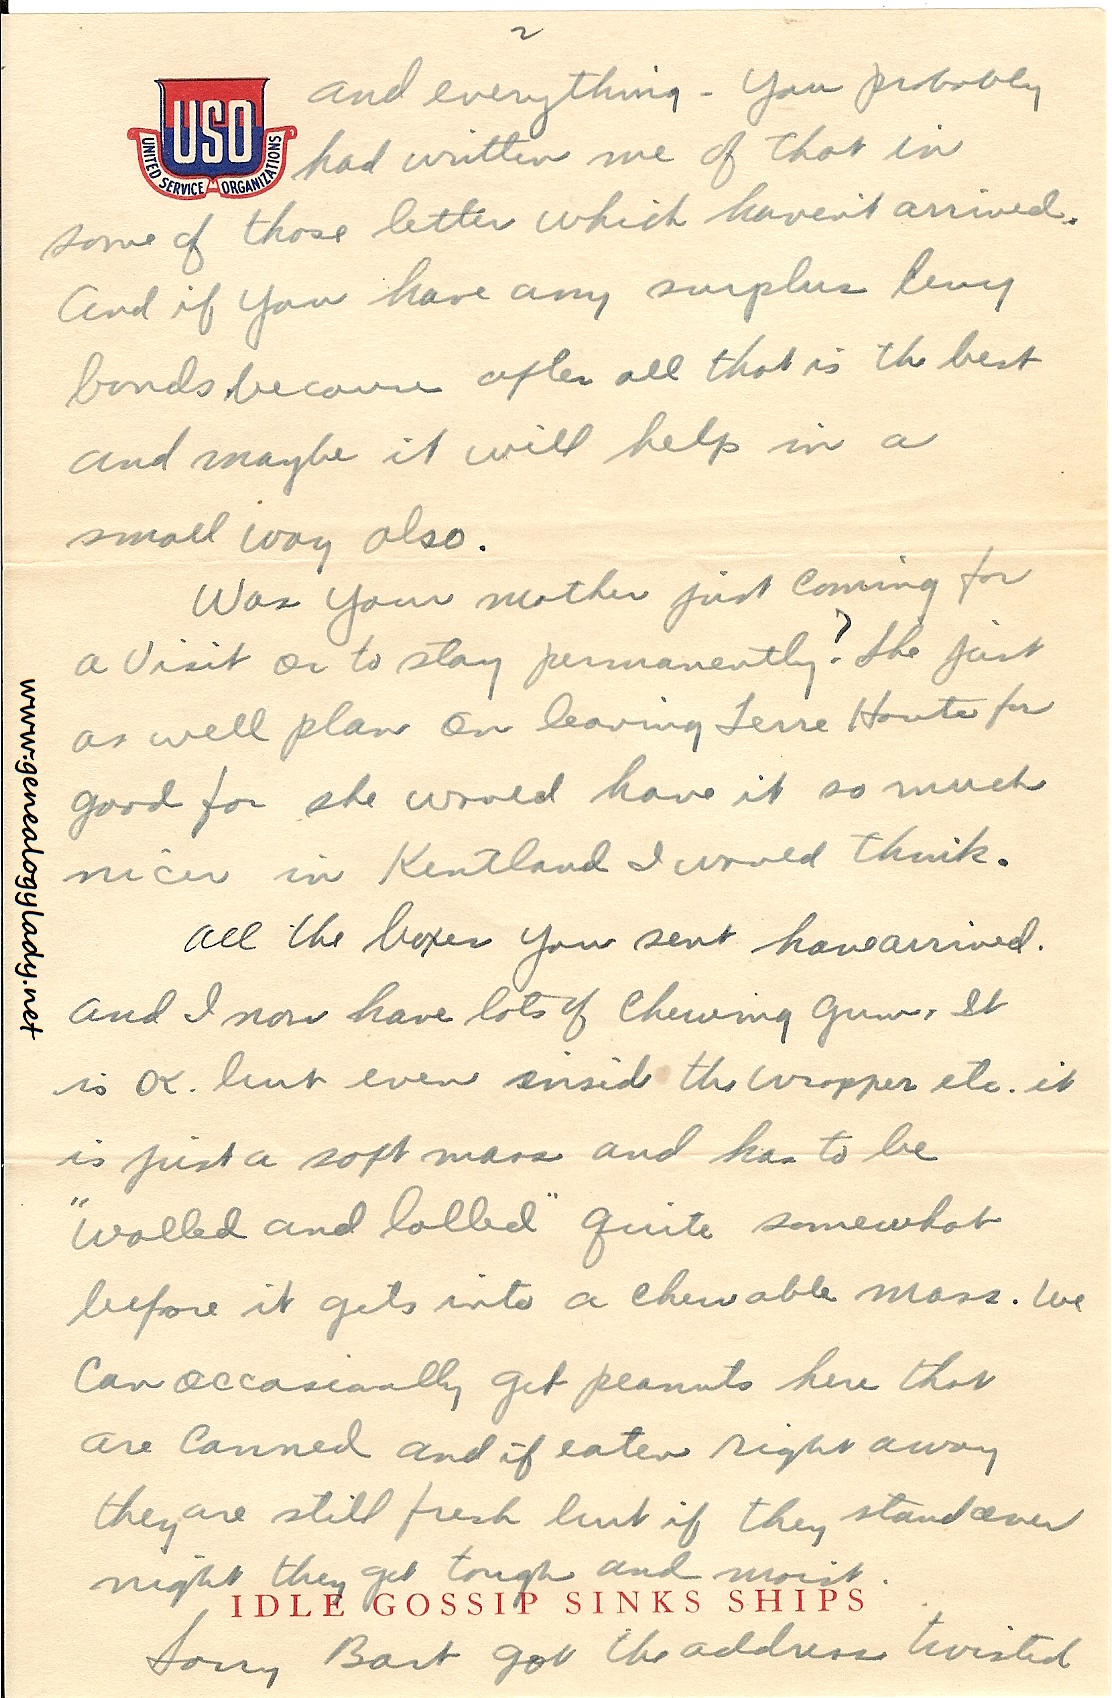 2
USO
UNITED SERVICE ORGANIZATIONS
and everything - You probably
had written me of that in
some of those letter which haven't arrived.
And if you have any surplus buy
bonds because after all that is the best
and maybe it will help in a
small way also.
Was your mother just coming for
a visit or to stay permanently? She just
as well plan on leaving Terre Haute for
good for she would have it so much
nicer in Kentland I would think.
All the boxes you sent have arrived.
and I now have lots of chewing gum. It
is OK. but even inside the wrapper etc. it
is just a soft mass and has to be
"wolled and lolled" quite somewhat
before it gets into a chewable mass. We
can occasionally get peanuts here that
are canned and if eaten right away
they are still fresh but if they stand over
night they get tough and moist.
IDLE GOSSIP SINKS SHIPS
Sorry Bart got the address twisted
www.genealogylady.net